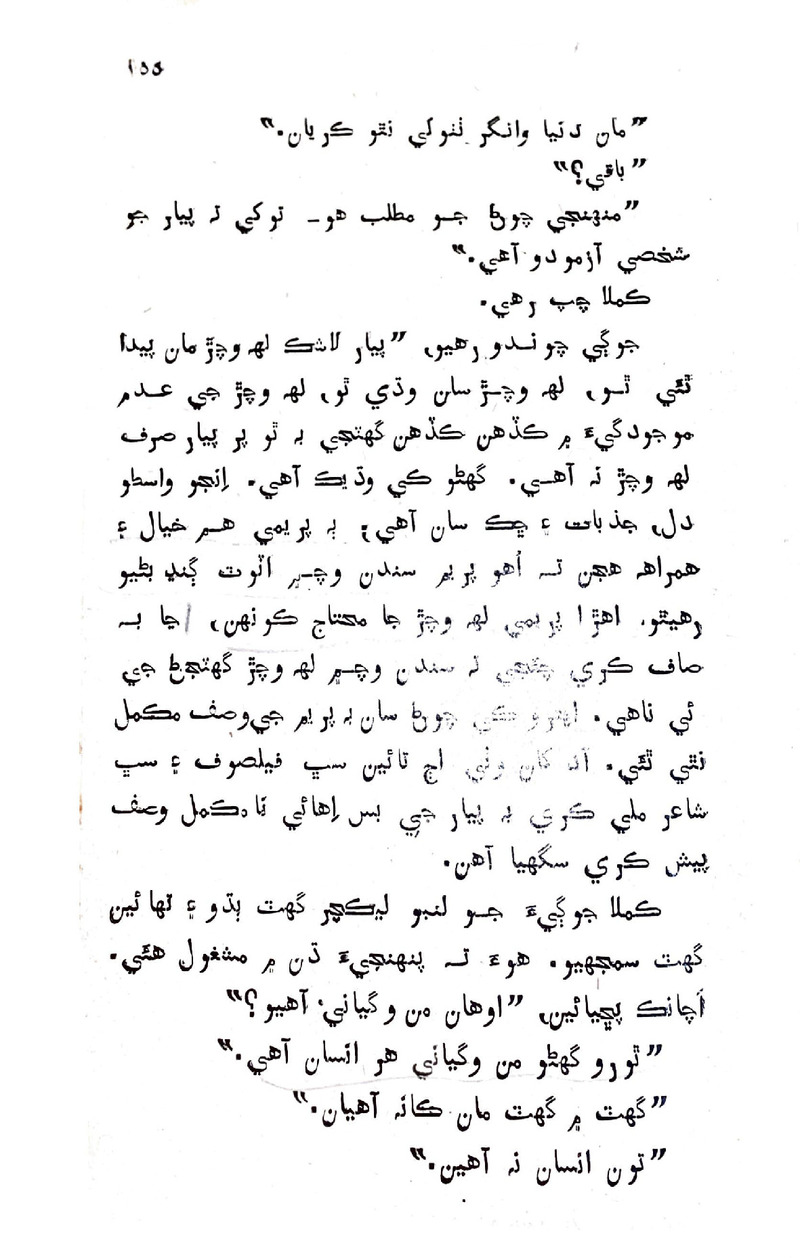 ۱۵۵
”مان دنيا وانگر ٺٺولي نٿو ڪريان.“
”باقي؟“
”منهنجي چوڻ جو مطلب هو۔ توکي تہ پيار جو
شخصي آزمودو آهي.“
ڪملا چپ رهي.
جوڳي چوندو رهيو، ”پيار لاشڪ لهہ وچڙ مان پيدا
ٿئي ٿو، لهہ وچڙ سان وڌي ٿو، لهہ وچڙ جي عدم
موجودگيءَ ۾ ڪڏهن ڪڏهن گهٽجي بہ ٿو پر پيار صرف
لهہ وچڙ نہ آهي. گهڻو ڪي وڌيڪ آهي. اِنجو واسطو
دل، جذبات ۽ ڇڪ سان آهي؛ بہ پريمي هم خيال ۽
همراهہ هجن تہ اُهو پريم سندن وچ۾ اٽوٽ ڳنڍ بڻيو
رهيٿو. اهڙا پريمي لهہ وچڙ جا محتاج ڪونهن، اچا بہ
صاف ڪري چئجي تہ سندن وچ۾ لهہ وچڙ گهٽجڻ جي
ئي ناهي. ايترو ڪي چوڻ سان بہ پريم جي وصف مڪمل
نٿي ٿئي. آد کان وٺي اڄ تائين سڀ فيلصوف ۽ سڀ
شاعر ملي ڪري بہ پيار جي بس اِهائي نامڪمل وصف
پيش ڪري سگهيا آهن.
ڪملا جوڳيءَ جو لنبو ليڪچر گهٽ ٻڌو ۽ تهائين
گهٽ سمجهيو. هوءَ تہ پنهنجيءَ ڌن ۾ مشغول هئي.
اَچانڪ پڇيائين، ”اوهان من وگياني آهيو؟“
”ٿورو گهڻو من وگياني هر انسان آهي.“
”گهٽ ۾ گهٽ مان ڪانہ آهيان.“
”تون انسان نہ آهين.“